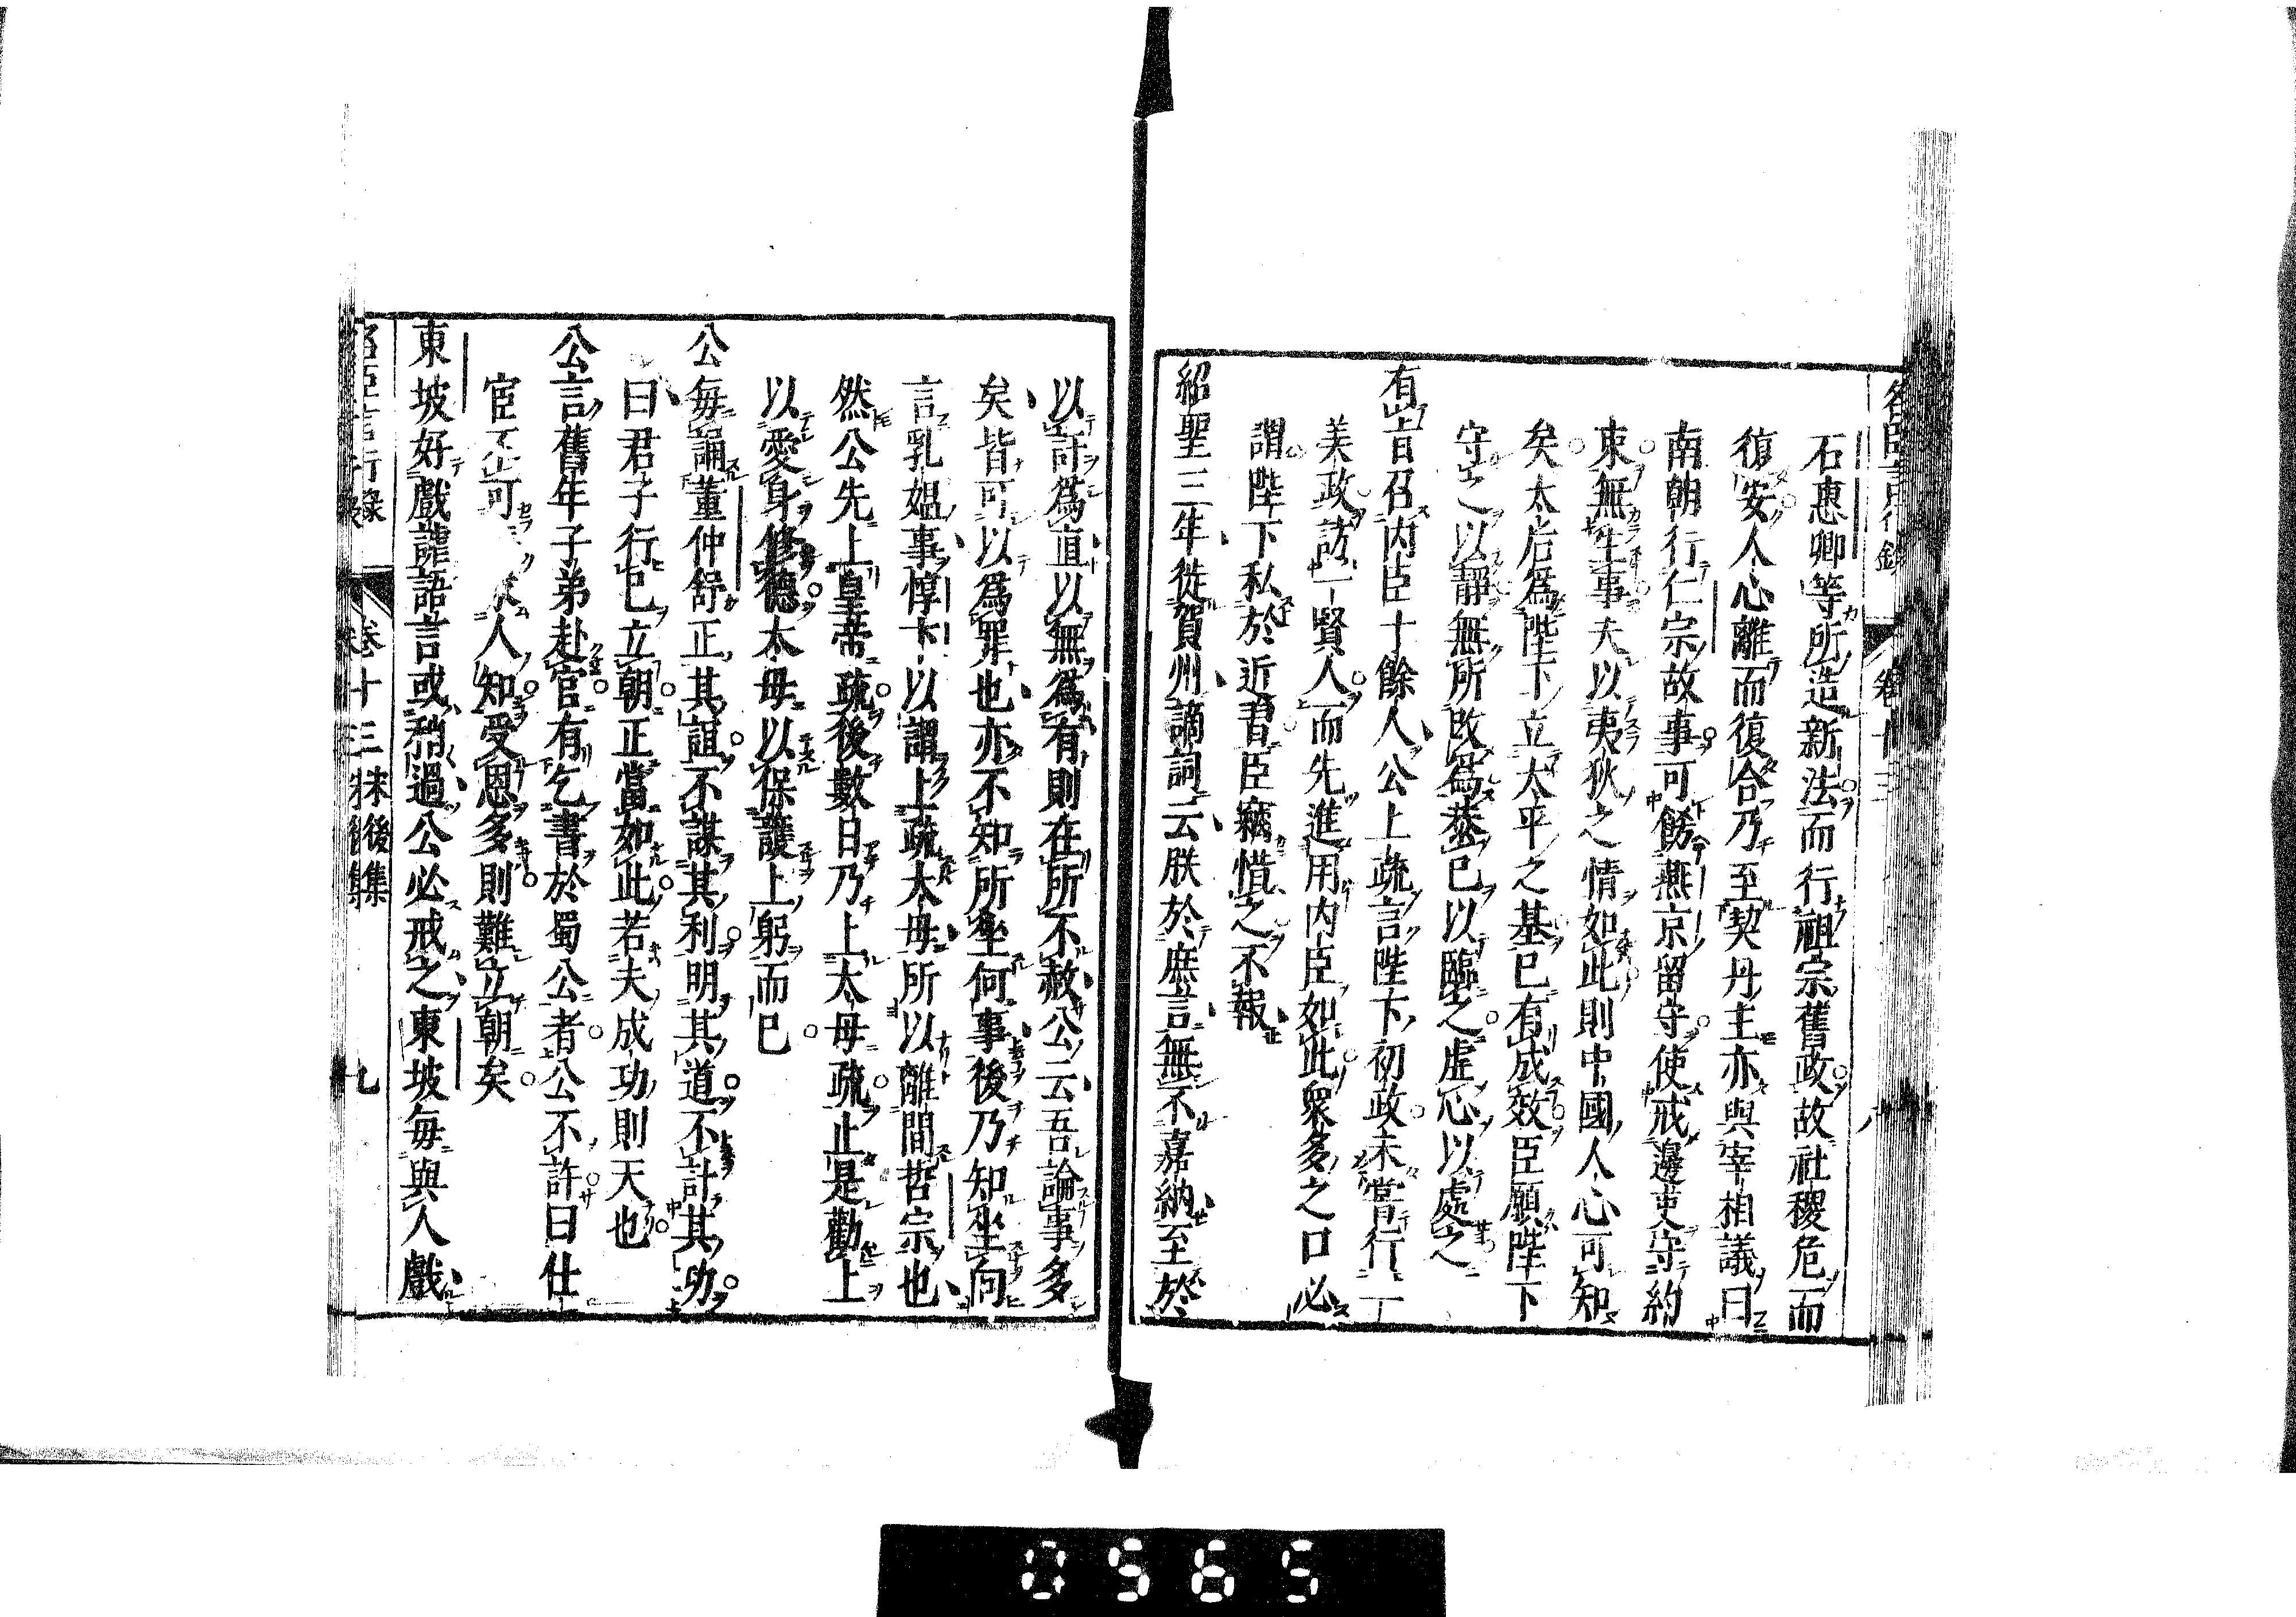 石惠卿等所造新法而行祖宗舊政故社稷危而
復安人心離而復合乃至契丹主亦與宰相議曰
南朝行仁宗故事可餝燕京留守使戒邊吏守約
束無生事夫以夷狄之情如此則中國人心可知
矣太后爲陛下立太平之基已有成效臣願陛下
守之以靜無所改爲恭已以臨之虛心以處之
有旨召内臣十餘人公上疏言陛下初政未嘗行一
美政訪一賢人而先進用内臣如此衆多之口必
謂陛下私於近習臣竊惜之不報
紹聖三年徙賀州謫詞云朕於庶言無不嘉納至於
以訐爲直以無爲有則在所不赦公云吾論事多
矣皆可以爲罪也亦不知所坐何事後乃知坐向
言乳媪事惇卞以謂上疏太母所以離間哲宗也
然公先上皇帝疏後數日乃上太母疏止是勸上
以愛身修德太母以保護上躬而已
公每誦董仲舒正其誼不謀其利明其道不計其功
曰君子行已立朝正當如此若夫成功則天也
公言舊年子弟赴官有乞書於蜀公者公不許曰仕
宦不可人知受恩多則難立朝矣
東坡好戲謔語言或稍過公必戒之東坡每與人戲
卷十三
後集
九
0565